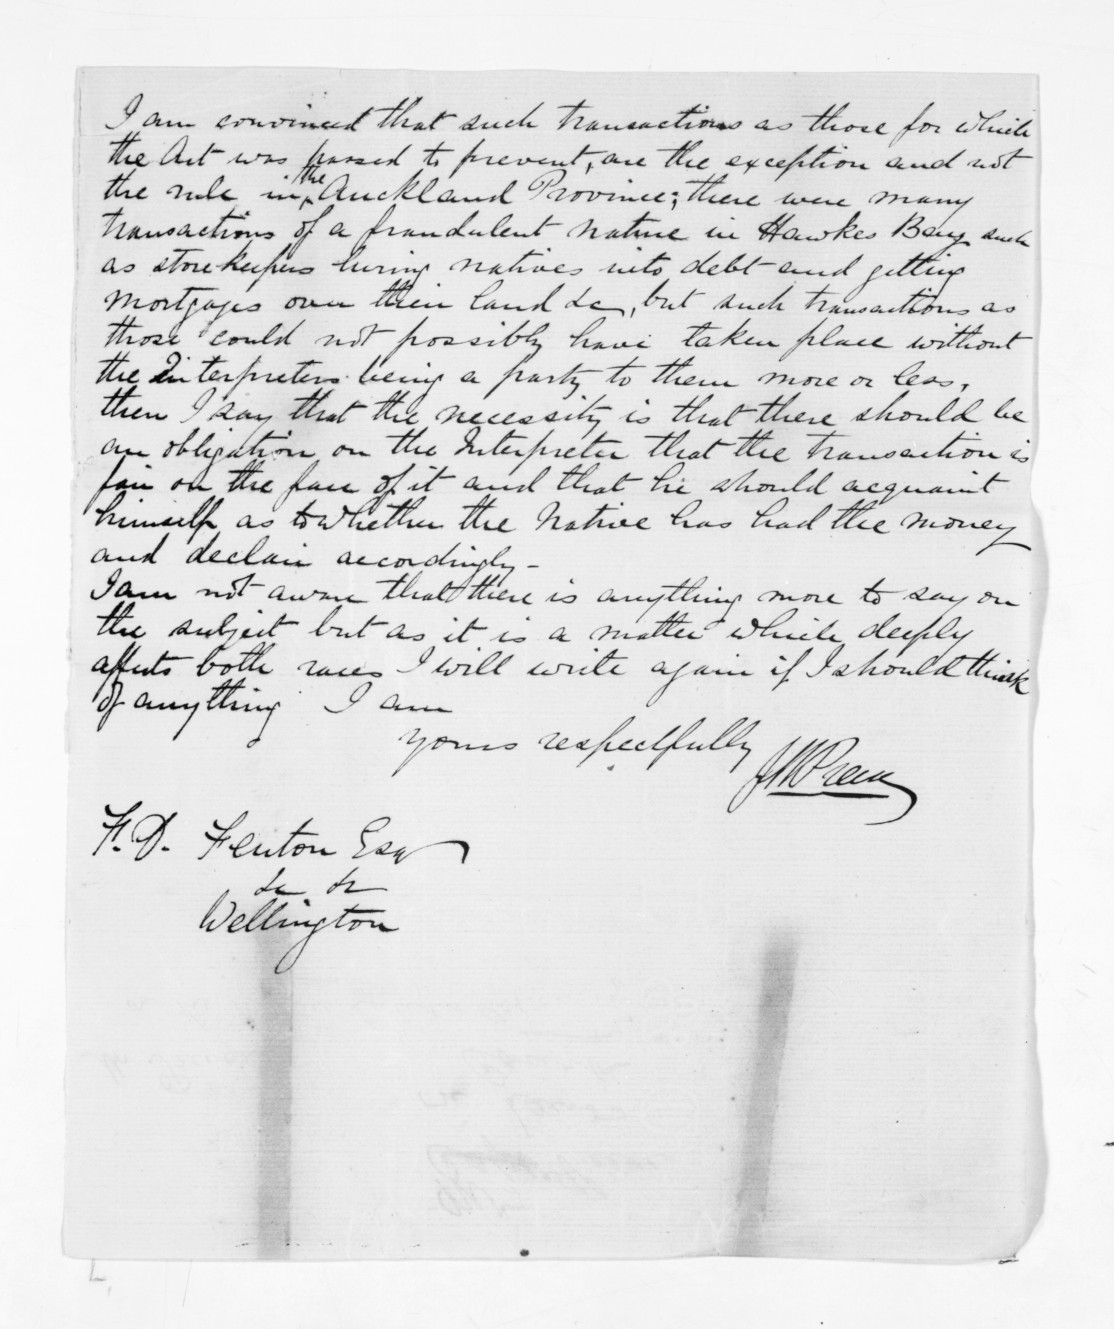 I am convinced that such transactions as those for which
the Act was passed to prevent, are the exception and not
the rule in the Auckland Province; there were many
transactions of a fraudulent nature in Hawkes Bay such
as storekeepers luring natives into debt and getting
mortgages over their land &c, but such transactions as
those could not possibly have taken place without
the Interpreters being a party to them more or less,
then I say that the necessity is that there should be
an obligation on the Interpreter that the transaction is
fair on the face of it and that he should acquaint
himself as to whether the Native has had the money
and declair accordingly -
I am not aware that there is anything more to say on
the subject but as it is a matter which deeply
affects both races I will write again if I should think
of anything I am
yours respectfully
JW Preece
F. D. Fenton Esq
&c &c
Wellington